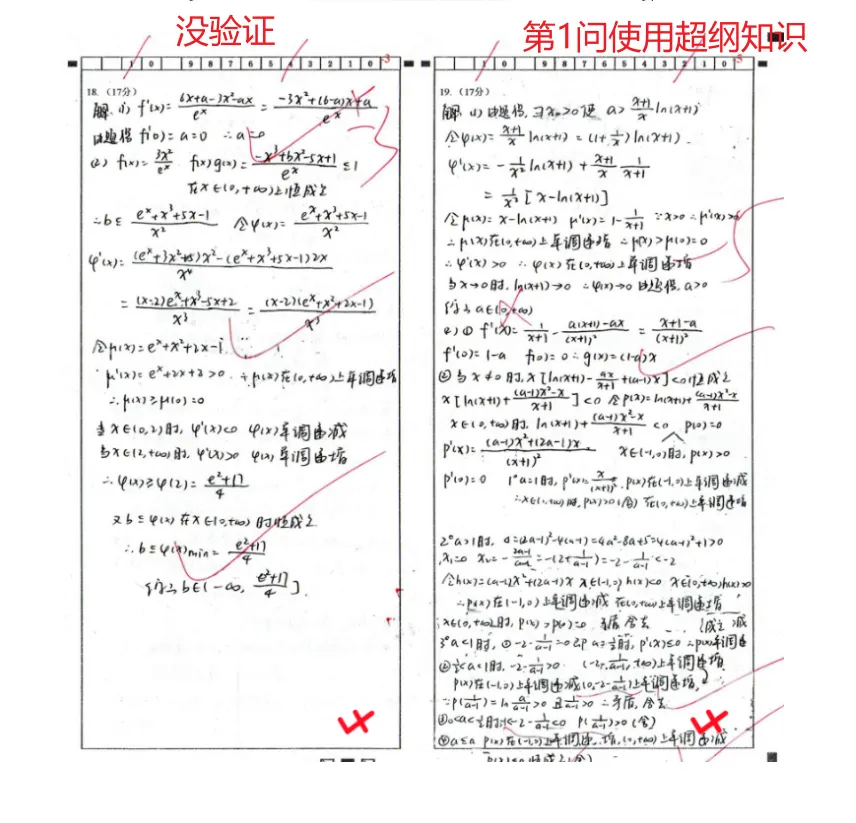 没验证
第1问使用超纲知识
-3
-5
1 0 1 2 3 4 3 2 1 0
18. (17分)
解: (1) f'(x)= (6x+a-3x²-ax)/e^x = (-3x²+(6-a)x+a)/e^x
由题得 f'(0)=a=0 ∴a=0
(2) f(x)=3x²/e^x f(x)g(x)= (-x³+bx²-5x+1)/e^x ≤1
在x∈(0,+∞)上恒成立
∴b≤ (e^x+x³+5x-1)/x² 令φ(x)= (e^x+x³+5x-1)/x²
φ'(x)= ((e^x+3x²+5)x²-(e^x+x³+5x-1)2x)/x⁴
= ((x-2)e^x+x³-5x+2)/x³ = (x-2)(e^x+x²+2x-1)/x³
令μ(x)=e^x+x²+2x-1
μ'(x)=e^x+2x+2>0 ∴μ(x)在(0,+∞)上单调递增
∴μ(x)≥μ(0)=0
当x∈(0,2)时, φ'(x)<0 φ(x)单调递减
当x∈(2,+∞)时, φ'(x)>0 φ(x)单调递增
∴φ(x)≥φ(2)= (e²+17)/4
又b≤φ(x)在x∈(0,+∞)时恒成立
∴b≤φ(x)min= (e²+17)/4
综上b∈(-∞, (e²+17)/4]
4
19. (17分)
解 (1) 由题得, ∃x₀>0使 a> (x+1)/x ln(x+1)
令φ(x)= (x+1)/x ln(x+1) = (1+1/x)ln(x+1).
φ'(x)= -1/x² ln(x+1) + (x+1)/x · 1/(x+1)
= 1/x² [x-ln(x+1)]
令μ(x)=x-ln(x+1) μ'(x)=1-1/(x+1) ∵x>0 ∴μ'(x)>0
∴μ(x)在(0,+∞)上单调递增 ∴μ(x)>μ(0)=0
∴φ'(x)>0 ∴φ(x)在(0,+∞)上单调递增
当x→0时, ln(x+1)→0 ∴φ(x)→0 由题得, a>0
综上a∈(0,+∞)
(2) ① f'(x)= 1/(x+1) - (a(x+1)-ax)/(x+1)² = (x+1-a)/(x+1)²
f'(0)=1-a f(0)=0 ∴g(x)=(1-a)x
② 当x≠0时, x[ln(x+1)-ax/(x+1)+(a-1)x]<0恒成立
x[ln(x+1)+((a-1)x²-x)/(x+1)]<0 令p(x)=ln(x+1)+((a-1)x²-x)/(x+1)
x∈(0,+∞)时, ln(x+1)+((a-1)x²-x)/(x+1)<0 p(0)=0
p'(x)= ((a-1)x²+(2a-1)x)/(x+1)² x∈(-1,0)时, p(x)>0
p'(0)=0 1°a=1时, p'(x)=x/(x+1)², p(x)在(-1,0)上单调递减
∴x∈(0,+∞)时, p(x)>0(舍) 在(0,+∞)上单调递增
2°a>1时, Δ=(2a-1)²-4(a-1)=4a²-8a+5=4(a-1)²+1>0
x₁=0 x₂=-(2a-1)/(a-1)=-(2+1/(a-1))=-2-1/(a-1)<-2
令h(x)=(a-1)x²+(2a-1)x x∈(-1,0) h(x)<0 x∈(0,+∞)h(x)>0
∴p(x)在(-1,0)上单调递减 在(0,+∞)上单调递增
x∈(0,+∞)时, p(x)>p(0)=0 矛盾, 舍去
3°a<1时, ①-2-1/(a-1)=0即a=1/2时, p'(x)≤0 ∴p(x)单调递减
②1/2<a<1时, -2-1/(a-1)>0 (-2-1/(a-1),+∞)上单调递增
p(x)在(-1,0)上单调递减(0,-2-1/(a-1))上单调递增,
③0<a<1/2时
4